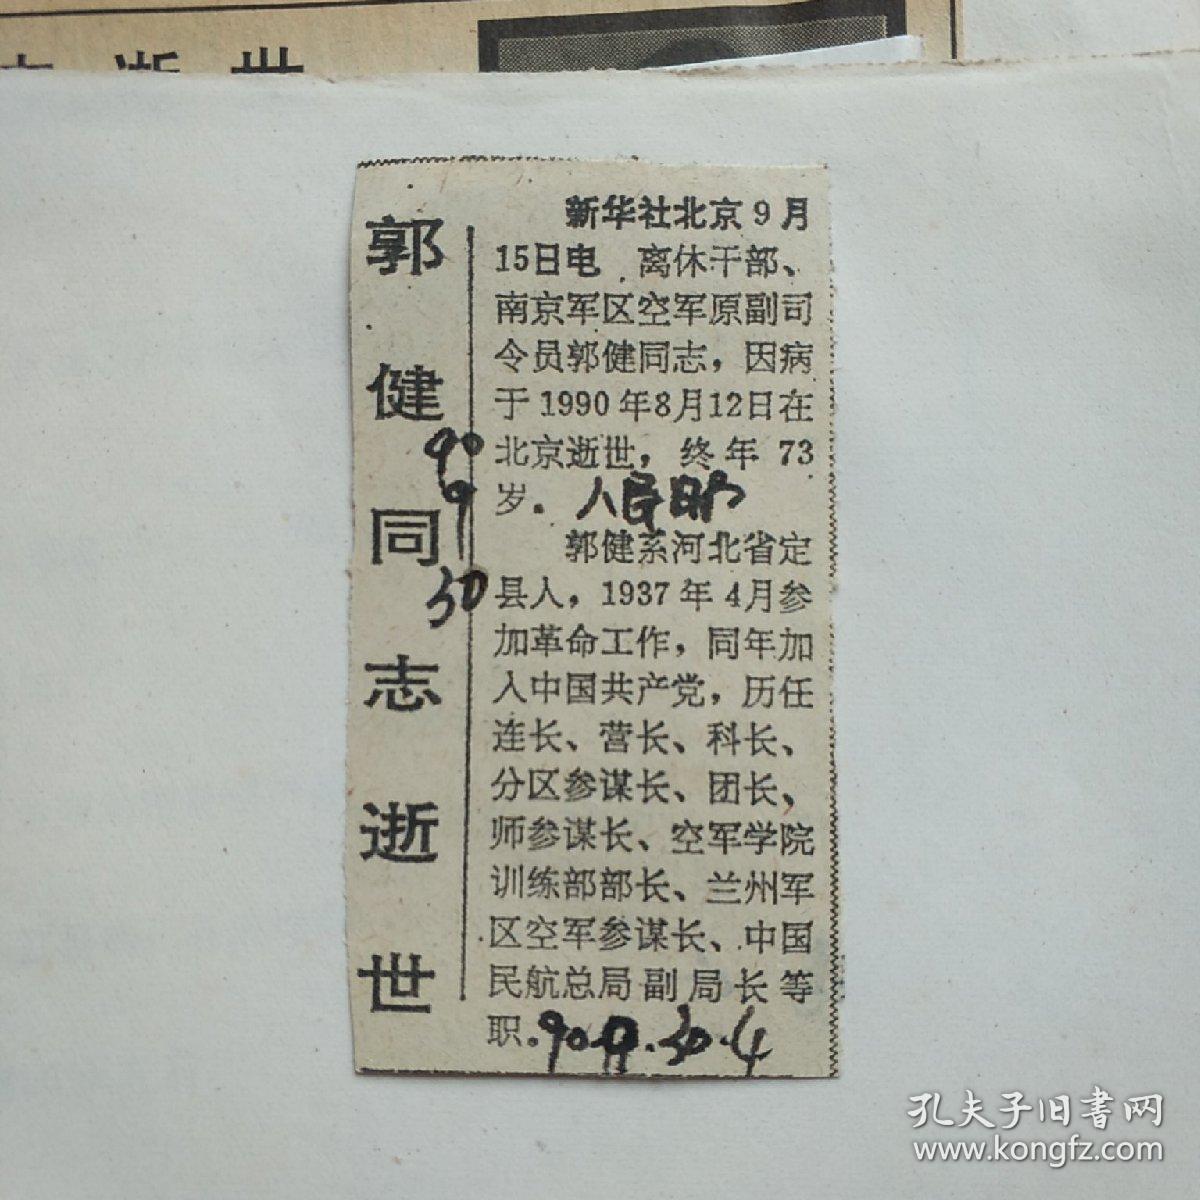 逝世
郭健同志逝世
新华社北京9月
15日电 离休干部、
南京军区空军原副司
令员郭健同志，因病
于1990年8月12日在
北京逝世，终年73
岁。人民日
郭健系河北省定
县人，1937年4月参
加革命工作，同年加
入中国共产党，历任
连长、营长、科长、
分区参谋长、团长、
师参谋长、空军学院
训练部部长、兰州军
区空军参谋长、中国
民航总局副局长等
职。90.9.30.4
90
9
30
孔夫子旧书网
www.kongfz.com